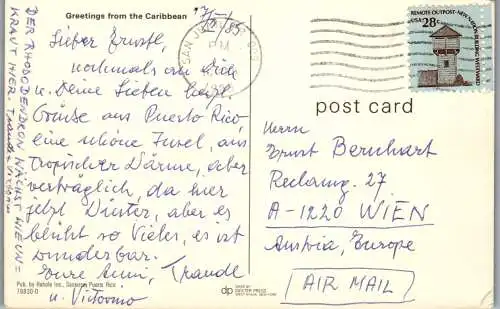 Greetings from the Caribbean
17/1/85
Lieber Ernstl,
nochmals an Dich
u. Deine Lieben herzl.
Grüße aus Puerto Rico
eine schöne Insel, aus
Tropischer Wärme, aber
verträglich, da hier
jetzt Winter, aber es
blüht so Vieles, es ist
wunderbar.
Eure Anni, Traudl
u. Victorino
DER RHODODENDRON NÄCHST
KRAUT HIER.
Pub. by Rahola Inc., Santurce, Puerto Rico
76930-D
SAN JU
PM
REMOTE OUTPOST-NEW NATION BUILDING WESTWARD
USA 28c
post card
Herrn
Ernst Bernhart
Reclamg. 27
A-1220 WIEN
Austria, Europe
AIR MAIL
dp
MADE BY
DEXTER PRESS
WEST NYACK, NEW YORK